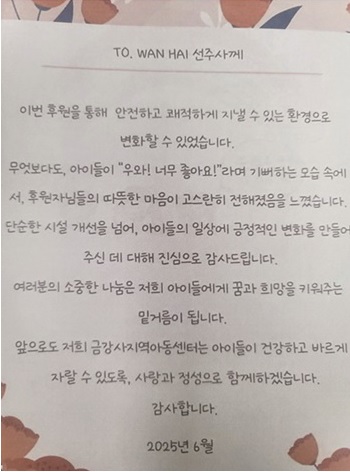 TO. WAN HAI 선주사께
이번 후원을 통해 안전하고 쾌적하게 지낼 수 있는 환경으로
변화할 수 있었습니다.
무엇보다도, 아이들이 "우와! 너무 좋아요!"라며 기뻐하는 모습 속에
서, 후원자님들의 따뜻한 마음이 고스란히 전해졌음을 느꼈습니다.
단순한 시설 개선을 넘어, 아이들의 일상에 긍정적인 변화를 만들어
주신 데 대해 진심으로 감사드립니다.
여러분의 소중한 나눔은 저희 아이들에게 꿈과 희망을 키워주는
밑거름이 됩니다.
앞으로도 저희 금강사지역아동센터는 아이들이 건강하고 바르게
자랄 수 있도록, 사랑과 정성으로 함께하겠습니다.
감사합니다.
2025년 6월